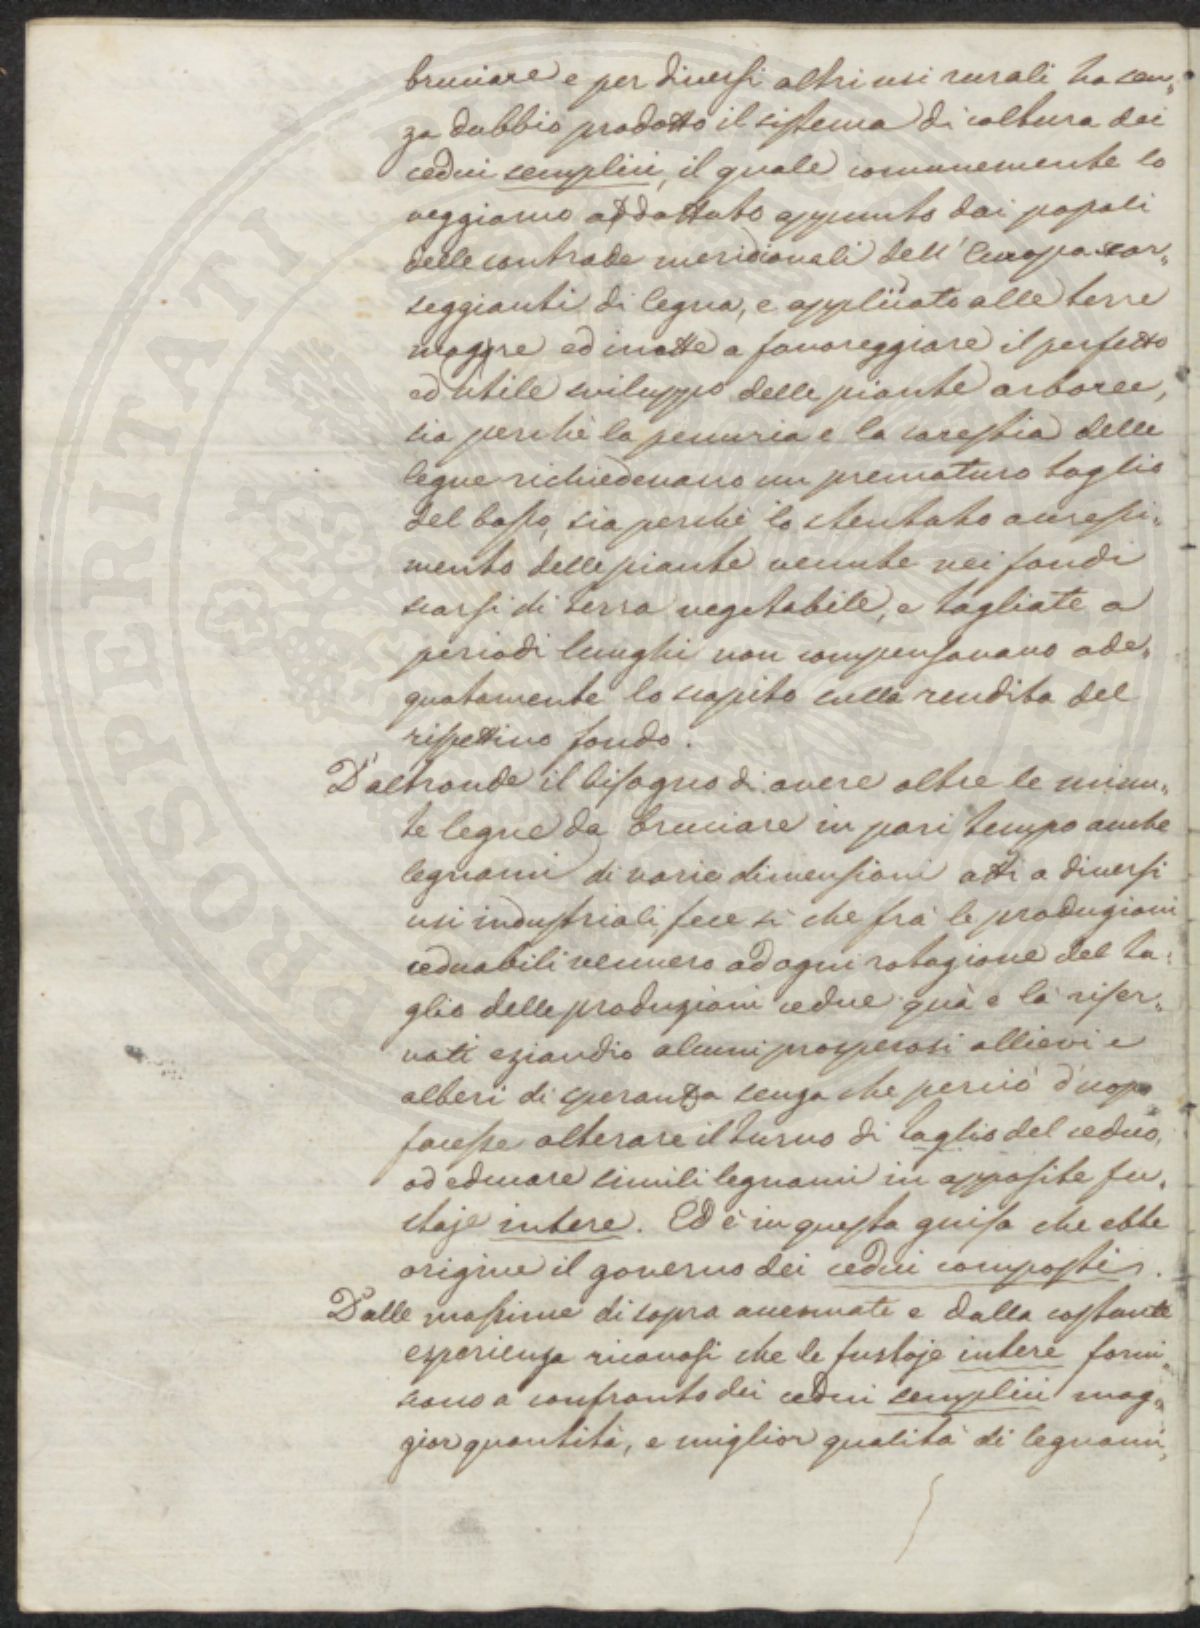 bruciare e per diversi altri usi rurali ha sen„
za dubbio prodotto il sistema di coltura dei
cedui semplici, il quale comunemente lo
veggiamo addottato appunto dai popoli
delle contrade meridionali dell' Europa scar„
seggianti di legna, e applicato alle terre
magre ed inatte a favoreggiare il perfetto
ed utile sviluppo delle piante arboree,
sia perchè la penuria e la carestia delle
legne richiedevano un prematuro taglio
del bosco, sia perchè lo stentato accresci„
mento delle piante venute nei fondi
scarsi di terra vegetabile, e tagliate a
periodi lunghi non compensavano ade„
quatamente lo scapito sulla rendita del
rispettivo fondo.
D'altronde il bisogno di avere oltre le minu„
te legne da bruciare in pari tempo anche
legnami di varie dimensioni atti a diversi
usi industriali fece sì che frà le produzioni
ceduabili vennero ad ogni rotazione del ta„
glio delle produzioni cedue quà e là riser„
vati eziandio alcuni prosperosi allievi e
alberi di speranza senza che perciò d'uopo
facesse alterare il turno di taglio del ceduo,
od educare simili legnami in apposite fu„
staje intere. Ed è in questa guisa che ebbe
origine il governo dei cedui composti.
Dalle massime di sopra accennate e dalla costante
esperienza ricavasi che le fustaje intere forni„
scono a confronto dei cedui semplici mag„
gior quantità, e miglior qualità di legnami,
PROSPERITATI